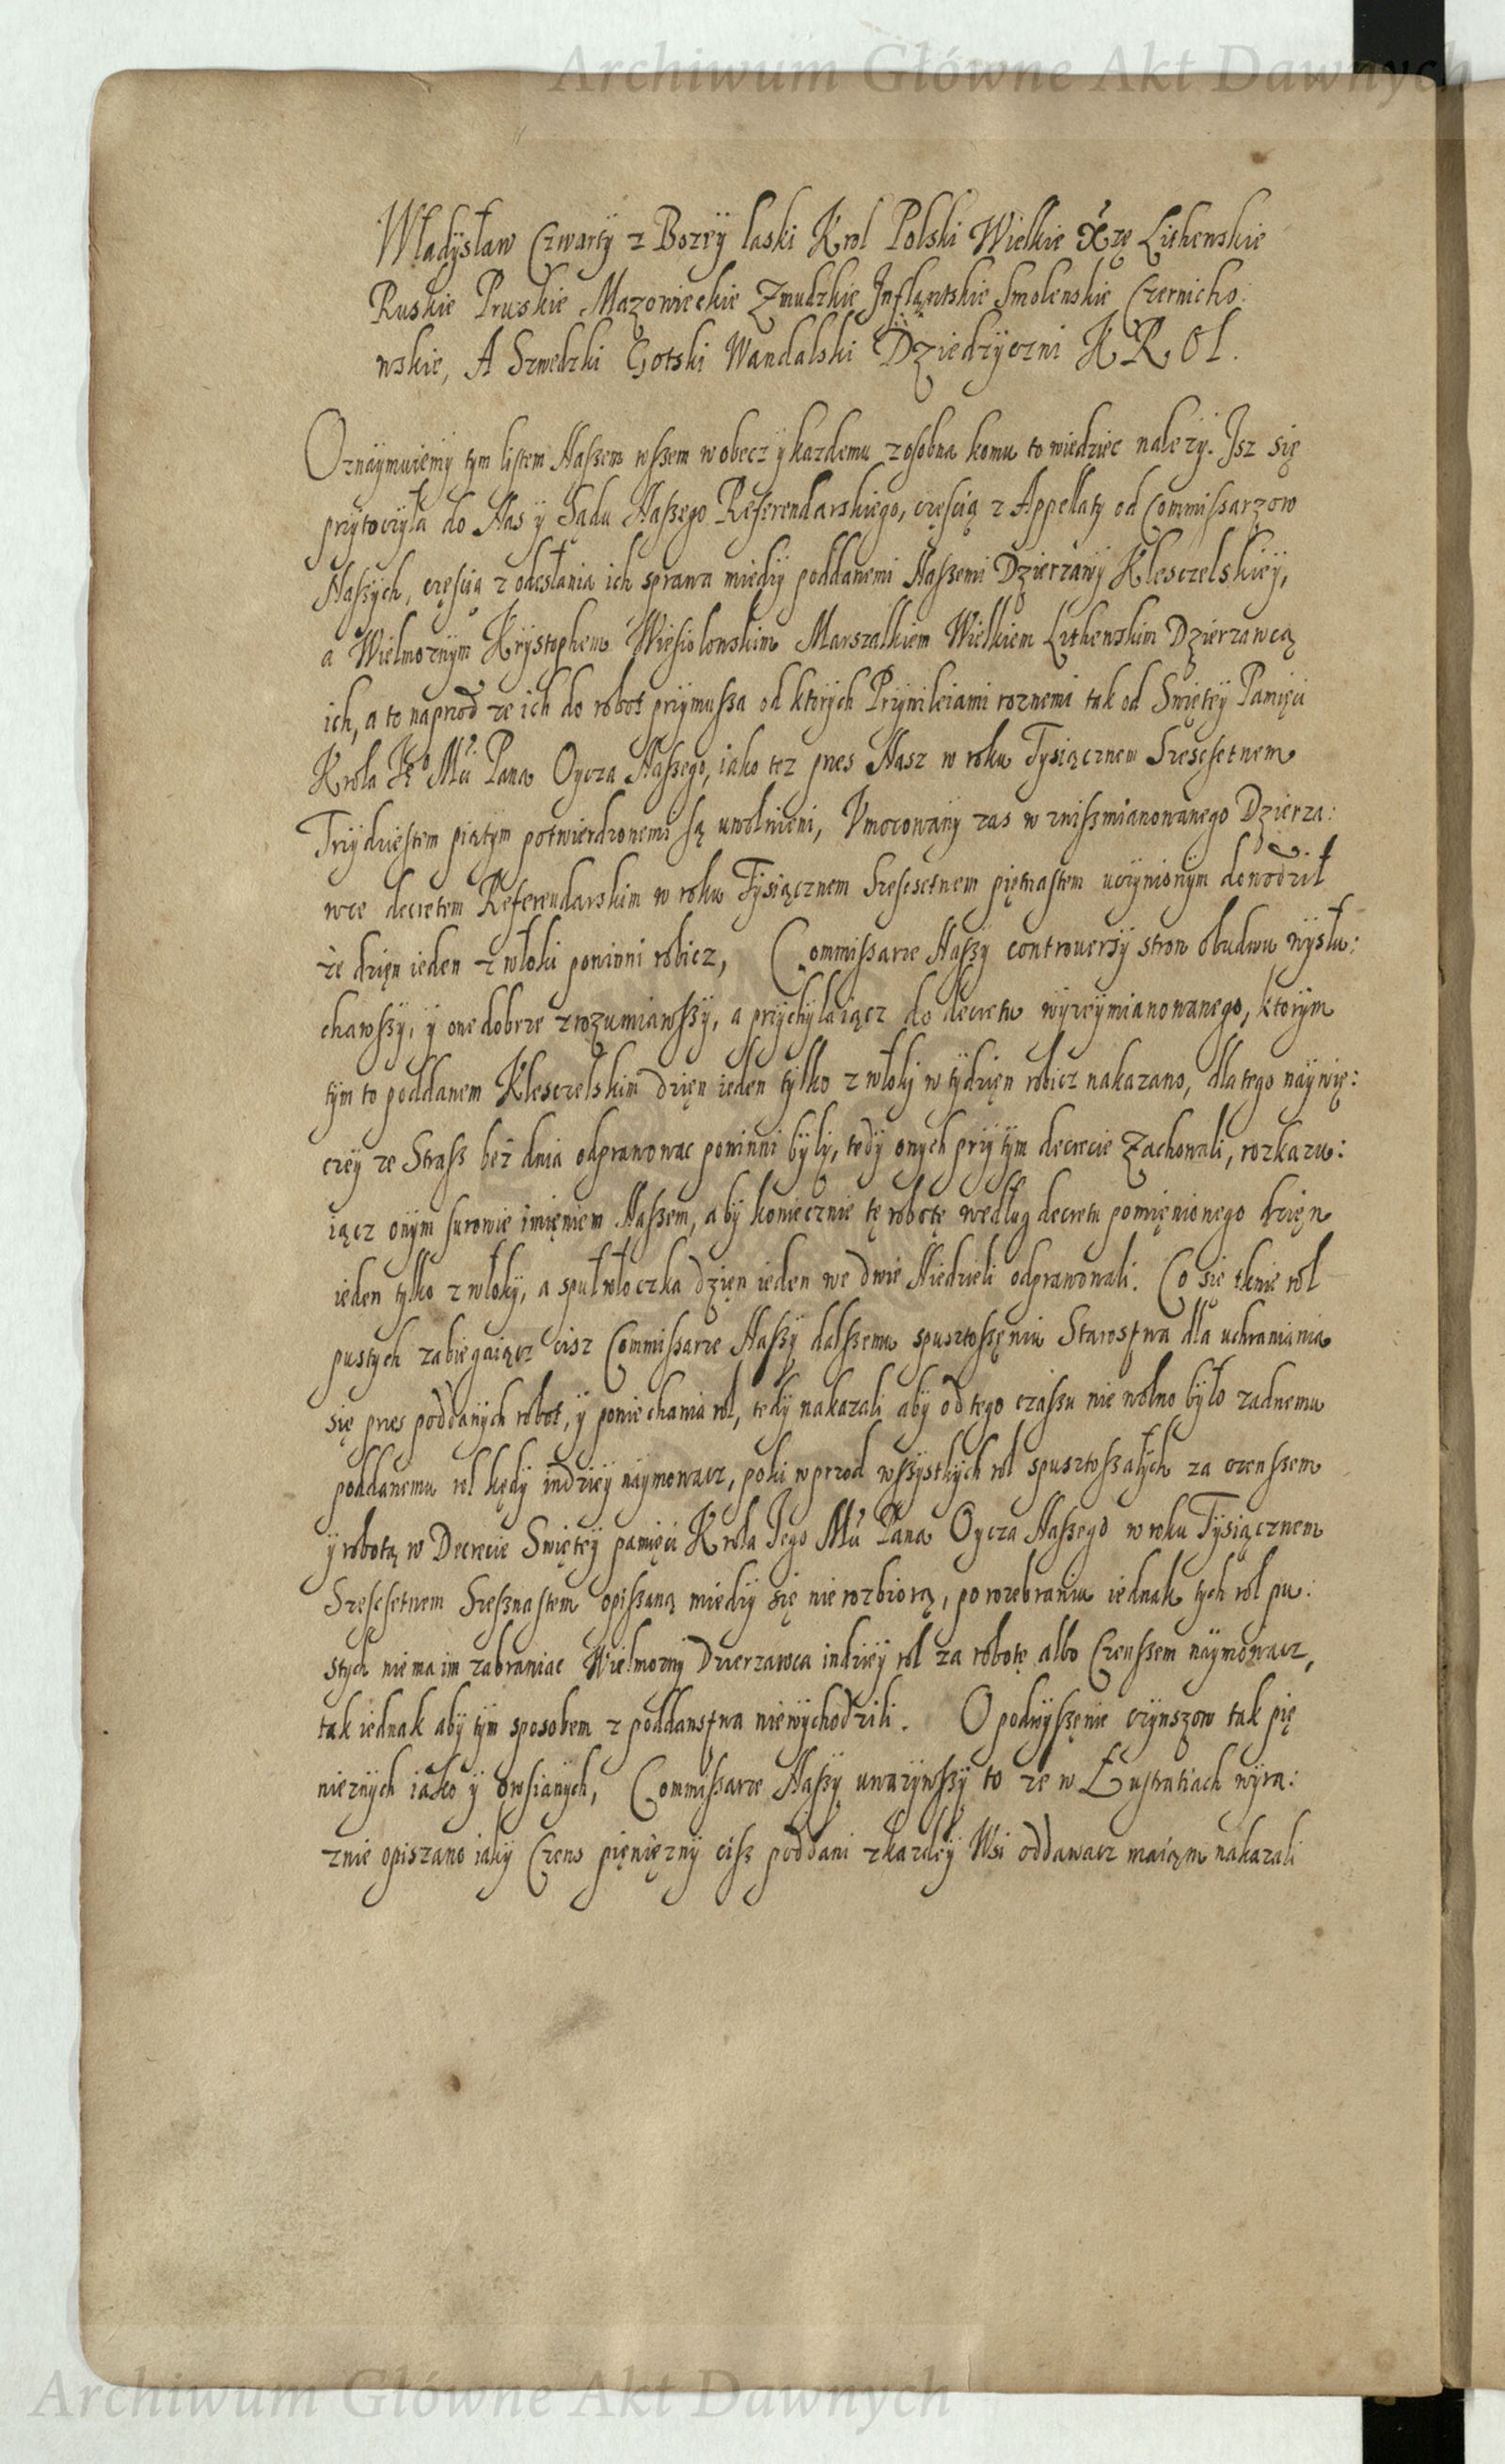 Archiwum Główne Akt Dawnych
Władysław Czwarty z Bozey laski Krol Polski Wielkie Xzę Lithenskie
Ruskie Pruskie Mazowieckie Zmudzkie Inflantskie Smolenskie Czernicho:
wskie, A Szwedzki Gotski Wandalski Dziedzyczni KROL.
Oznaymuiemy tym listem Naszem wszem wobecz y kazdemu zosobna komu to wiedziec nalezy. Isz się
przytoczyła do Nas y Sądu Naszego Referendarskiego, częscią z Appellaty od Commissarzow
Naszych, częscią z odesłania ich sprawa między poddanemi Naszemi Dzierzawy Klesczelskiey,
a Wielmoznym Krystophem Wiesiolowskim Marszalkiem Wielkiem Lithenskim Dzierzawcą
ich, a to naprzod ze ich do robot przymusza od ktorych Przywileiami roznemi tak od Swiętey Pamięci
Krola Je° Mci Pana Oycza Naszego, iako tez przes Nasz w roku Tysiącznem Szescsetnem
Trzydziestem piątym potwierdzonemi są uwolnieni, Vmocowany zas w zniszmianowanego Dzierza:
wce decretem Referendarskim w roku Tysiącznem Szescsetnem piętnastem uczynionym dowodził
że dzięn ieden z włoki powinni robicz, Commissarze Naszy controuersy stron obudwu wysłu:
chawszy, y one dobrze zrozumiawszy, a przychylaiącz do decretu wyzeymianowanego, ktorym
tym to poddanem Klesczelskim dzięn ieden tylko z włoki w tydzięn robicz nakazano, dla tego naywię:
czey ze Strasz bez dnia odprawowac powinni były, tedy onych przy tym decrecie Zachowali, rozkazu:
iącz onym surowie imięniem Naszem, aby koniecznie tę robotę według decretu pomięnionego dzięn
ieden tylko z włoky, a spułwłoczka dzięn ieden we dwie Niedzieli odprawowali. Co się tknie rol
pustych zabiegaiącz cisz Commissarze Naszy dalszemu spusztoszęniu Starostwa dla uchraniania
się przes poddanych robot, y poniechania rol, tedy nakazali aby od tego czaszu nie wolno było zadnemu
poddanemu rol kędy indziey naymowacz, poki wprzod wszystkych rol spusztoszałych za czenszem
y robotą w Decrecie Swiętey pamięci Krola Jego Mci Pana Oycza Naszego w roku Tysiącznem
Szescsetnem Szesznastem opiszaną miedzy się nie rozbiorą, po rozebraniu iednak tych rol pu:
stych nie ma im zabraniac Wielmozny Dzierzawca indziey rol za robotę albo Czenszem naymowacz,
tak iednak aby tym sposobem z poddanstwa niewychodzili. O podwyszęnie czynszow tak pię
nieznych iako y owsianych, Commissarze Naszy uwazywszy to ze w Lustratiach wyra:
znie opiszano iaky Czens pięniezny cisz poddani z kazdey Wsi oddawacz maią nakazali
Archiwum Główne Akt Dawnych